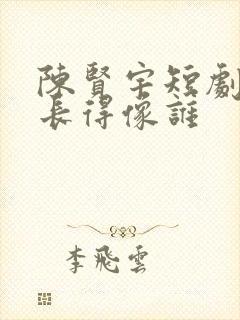 陳賢宅短劇
長得像誰
李飛雲